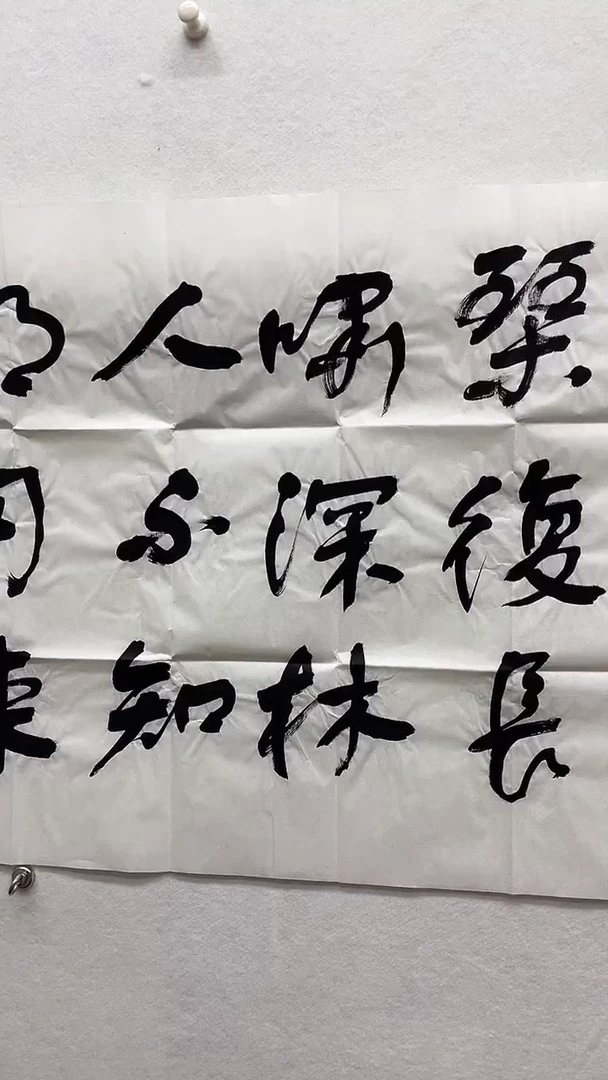 琴復長
嘯深林
人不知